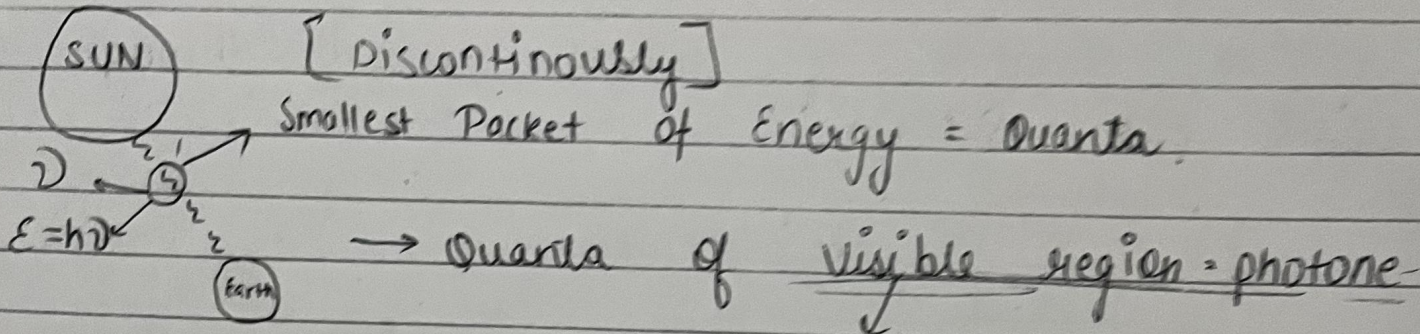 SUN [Discontinously]
Smallest Packet of Energy = Quanta
ν
E=hν → Quanta of visible region = photone
Earth